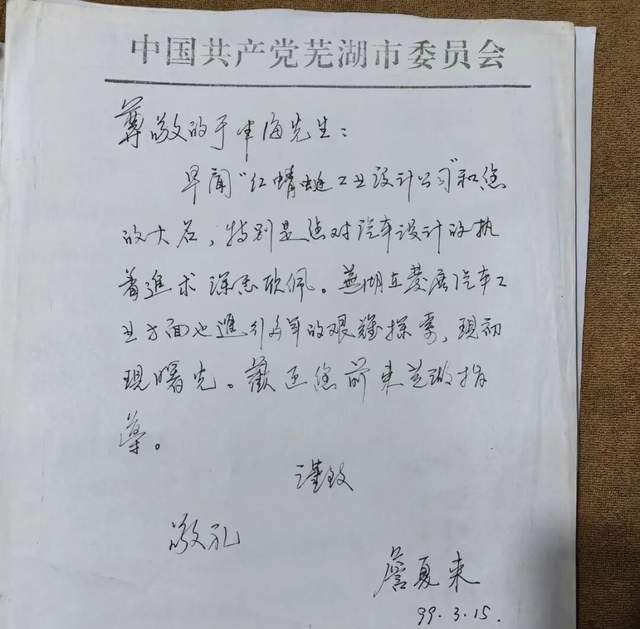 中国共产党芜湖市委员会
尊敬的于申海先生：
早闻“红蜻蜓工业设计公司”和您
的大名，特别是您对汽车设计的执
着追求深感欣佩。芜湖在发展汽车工
业方面也进行多年的艰难探索，现初
现曙光。歡迎您前来芜湖指
導。
谨致
敬礼
詹夏来
99.3.15.